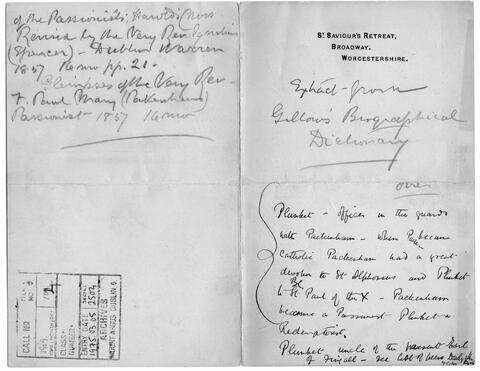 of the Passionists, Harold's Cross
Revised by the Very Rev. Ignatius
(Spencer) - Dublin Warren
1857 16mo pp. 21 -
Glimpses of the Very Rev -
F. Paul Mary (Pakenham)
Passionist - 1857 16mo
CALL NO
CLASS.
NUMBER.
ENTRY DATE
1975.03.05 2507
ARCHIVES
MOUNT ARGUS, DUBLIN 6.
ST SAVIOUR'S RETREAT,
BROADWAY,
WORCESTERSHIRE.
Extract - from
Gillow's Biographical
Dictionary
over
Plunket - officer in the guards
with Packenham - when became
Catholic Packenham had a great
devotion to St Alphonsus and Plunket
to St Paul of the X - Packenham
became a Passionist Plunket a
Redemptorist.
Plunket uncle of the present Earl
of Fingall - see list of